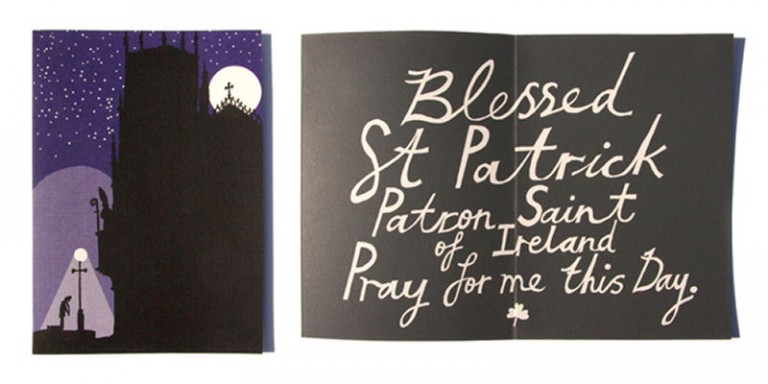 Blessed
St Patrick
Patron Saint
of Ireland
Pray for me this Day.